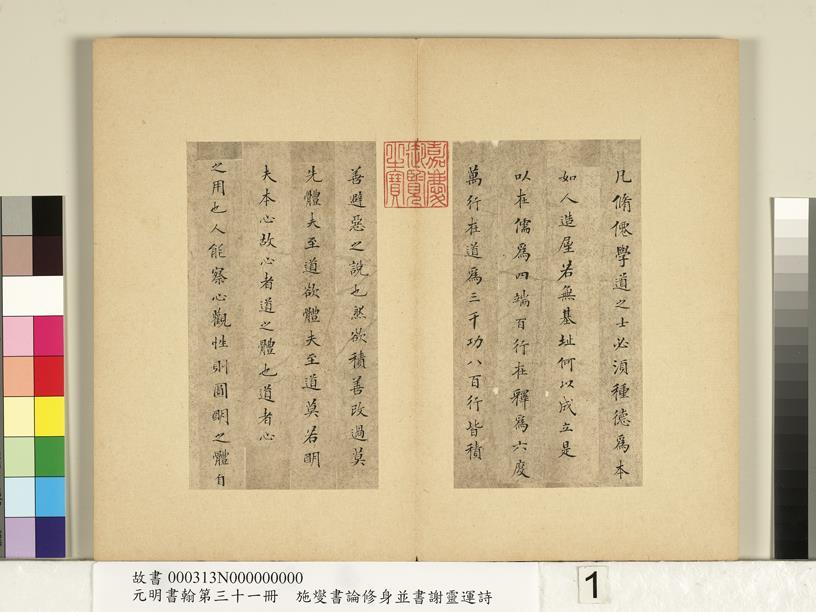 凡脩僊學道之士必須種德爲本
如人造屋若無基址何以成立是
以在儒爲四端百行在釋爲六度
萬行在道爲三千功八百行皆積
善避惡之說也然欲積善改過莫
先體夫至道欲體夫至道莫若明
夫本心故心者道之體也道者心
之用也人能察心觀性則圓明之體自
嘉慶御覽之寶
故書 000313N000000000
元明書翰第三十一冊 施燮書論修身並書謝靈運詩
1